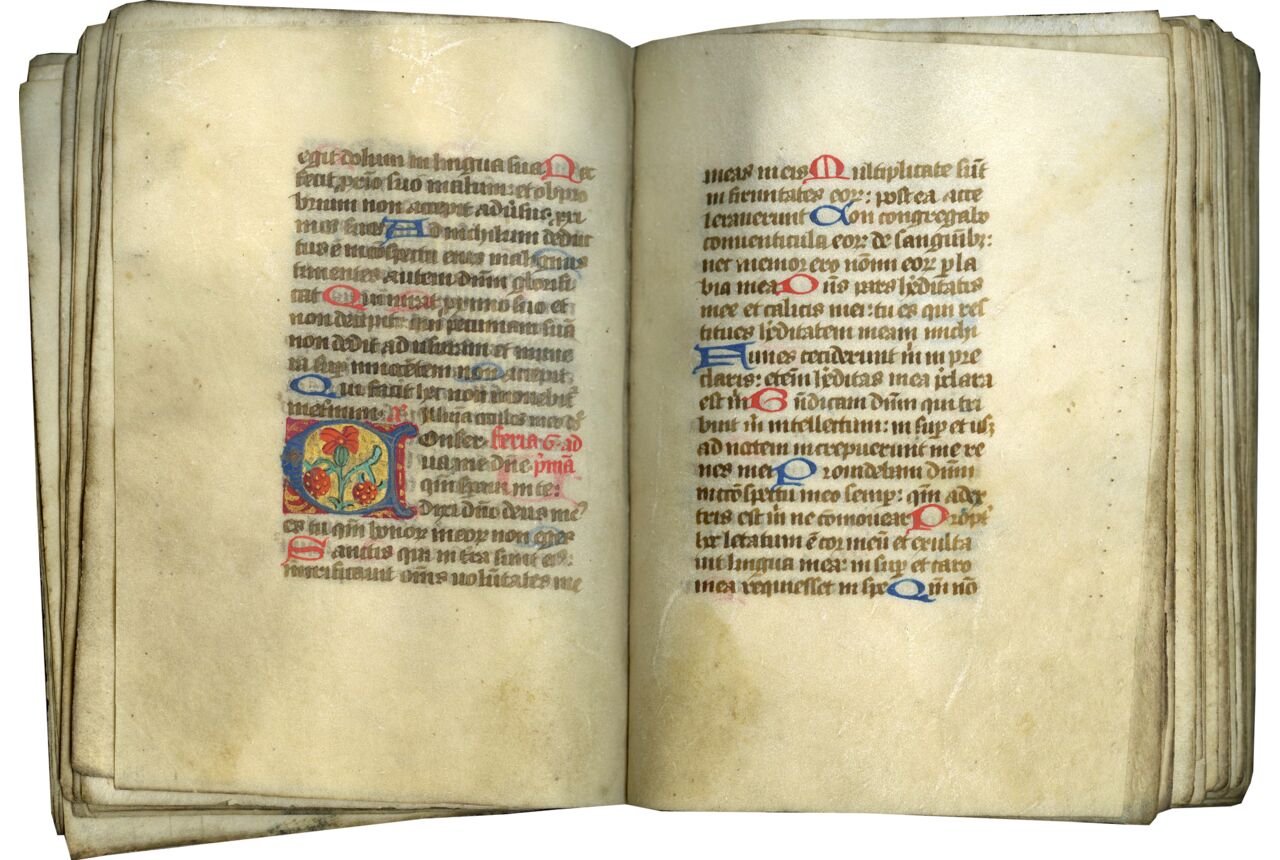 egit dolum in lingua sua Nec
fecit p̱xīo suo malum: et obpro
brium non accepit adūsus p̱xi
mos suos Ad nichilum deduc
tus ē in cōspectu eius malignus
timentes autem dnm̄ glorifi
cat Qui iurat p̱ximo suo et
non decipit: qui pecuniam suā
non dedit ad usuram et mune
ra sup̱ innocētem non accepit
Qui facit hec non mouebit᷑
meternum
Illumina oculos meos
Conser feria 6 ad
ua me dn̄e p̱mā
qm̄ speraui in te:
Dixi dn̄o deus me᷒
es tu qm̄ bonor meor non eges
Sanctis qui in t̄ra sunt ei᷒:
mirificauit om̄s uolūtates me
meas in eis Multiplicate sūt
infirmitates eor: postea acce
lerauerunt Non congregabo
conuenticula eor de sanguībꝫ:
nec memor ero nōim eor p̱ la
bia mea Dn̄s pars h̄editatis
mee et calicis mei: tu es qui res
titues h̄editatem meam michi
Funes ceciderunt m̄ in pre
claris: eteni h̄editas mea p̄clara
est m̄ Bn̄dicam dnm̄ qui tri
buit m̄ intellectum: insup̱ et usꝫ
ad noctem increpuerunt me re
nes mei Prouidebam dnm̄
in cōspectu meo semp̱: qm̄ a dex
tris est m̄ ne cōmouear Propt᷑
hc̄ letatum ē cor meū et exulta
uit lingua mea: insup̱ et caro
mea requiescet in spe Qm̄ nō